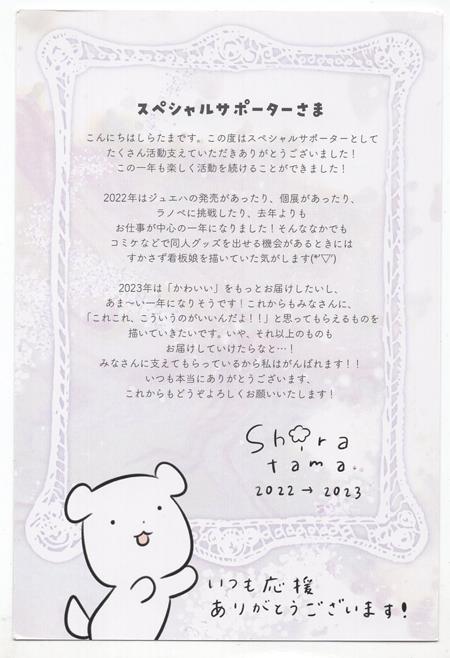 スペシャルサポーターさま
こんにちはしらたまです。この度はスペシャルサポーターとして
たくさん活動支えていただきありがとうございました！
この一年も楽しく活動を続けることができました！
2022年はジュエハの発売があったり、個展があったり、
ラノベに挑戦したり、去年よりも
お仕事が中心の一年になりました！そんななかでも
コミケなどで同人グッズを出せる機会があるときには
すかさず看板娘を描いていた気がします(*'▽')
2023年は「かわいい」をもっとお届けしたいし、
あま〜い一年になりそうです！これからもみなさんに、
「これこれ、こういうのがいいんだよ！！」と思ってもらえるものを
描いていきたいです。いや、それ以上のものも
お届けしていけたらなと…！
みなさんに支えてもらっているから私はがんばれます！！
いつも本当にありがとうございます、
これからもどうぞよろしくお願いいたします！
Shira
tama.
2022→2023
いつも応援
ありがとうございます！